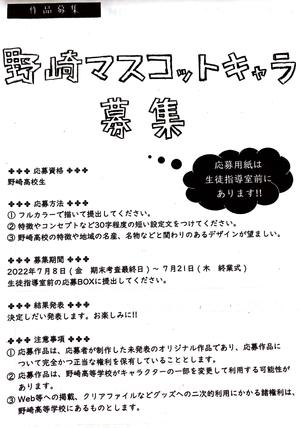 作品募集
野崎マスコットキャラ
募集
応募用紙は
生徒指導室前に
あります!!
✤✤✤ 応募資格 ✤✤✤
野崎高校生
✤✤✤ 応募方法 ✤✤✤
① フルカラーで描いて提出してください。
② 特徴やコンセプトなど30字程度の短い設定文をつけてください。
③ 野崎高校の特徴や地域の名産、名物などと関わりのあるデザインが望ましい。
✤✤✤ 募集期間 ✤✤✤
2022年7月8日(金 期末考査最終日)～7月21日(木 終業式)
生徒指導室前の応募BOXに提出してください。
✤✤✤ 結果発表 ✤✤✤
決定しだい発表します。お楽しみに!!
✤✤✤ 注意事項 ✤✤✤
① 応募作品は、応募者が制作した未発表のオリジナル作品であり、応募作品に
ついて完全かつ正当な権利を保有していることとします。
② 応募作品は、野崎高等学校がキャラクターの一部を変更して利用する可能性が
あります。
③ Web等への掲載、クリアファイルなどグッズへの二次的利用にかかる諸権利は、
野崎高等学校にあるものとします。